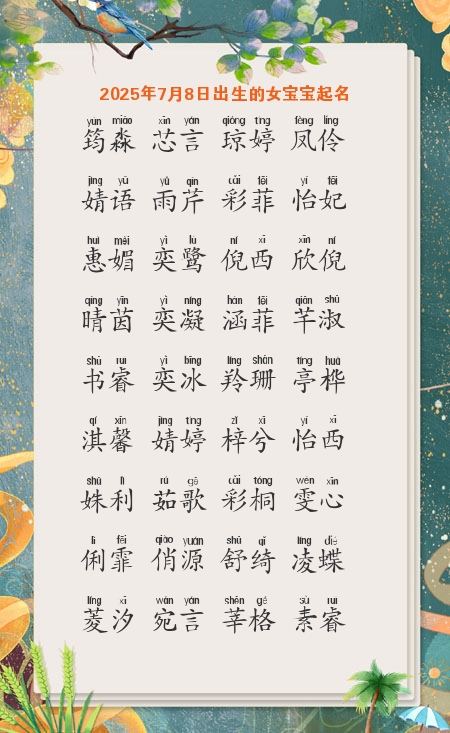 2025年7月8日出生的女宝宝起名
yún miǎo xīn yán qióng tíng fèng líng
筠淼 芯言 琼婷 凤伶
jìng yǔ yǔ qín cǎi fēi yí fēi
婧语 雨芹 彩菲 怡妃
huì mèi yì lù ní xī xīn ní
惠媚 奕鹭 倪西 欣倪
qíng yīn yì níng hán fēi qiān shū
晴茵 奕凝 涵菲 芊淑
shū ruì yì bīng líng shān tíng huà
书睿 奕冰 羚珊 亭桦
qí xīn jìng tíng zǐ xī yí xī
淇馨 婧婷 梓兮 怡西
shū lì rú gē cǎi tóng wén xīn
姝利 茹歌 彩桐 雯心
lì fēi qiào yuán shū qǐ líng dié
俐霏 俏源 舒绮 凌蝶
líng xī wǎn yán shēn gé sù ruì
菱汐 宛言 莘格 素睿